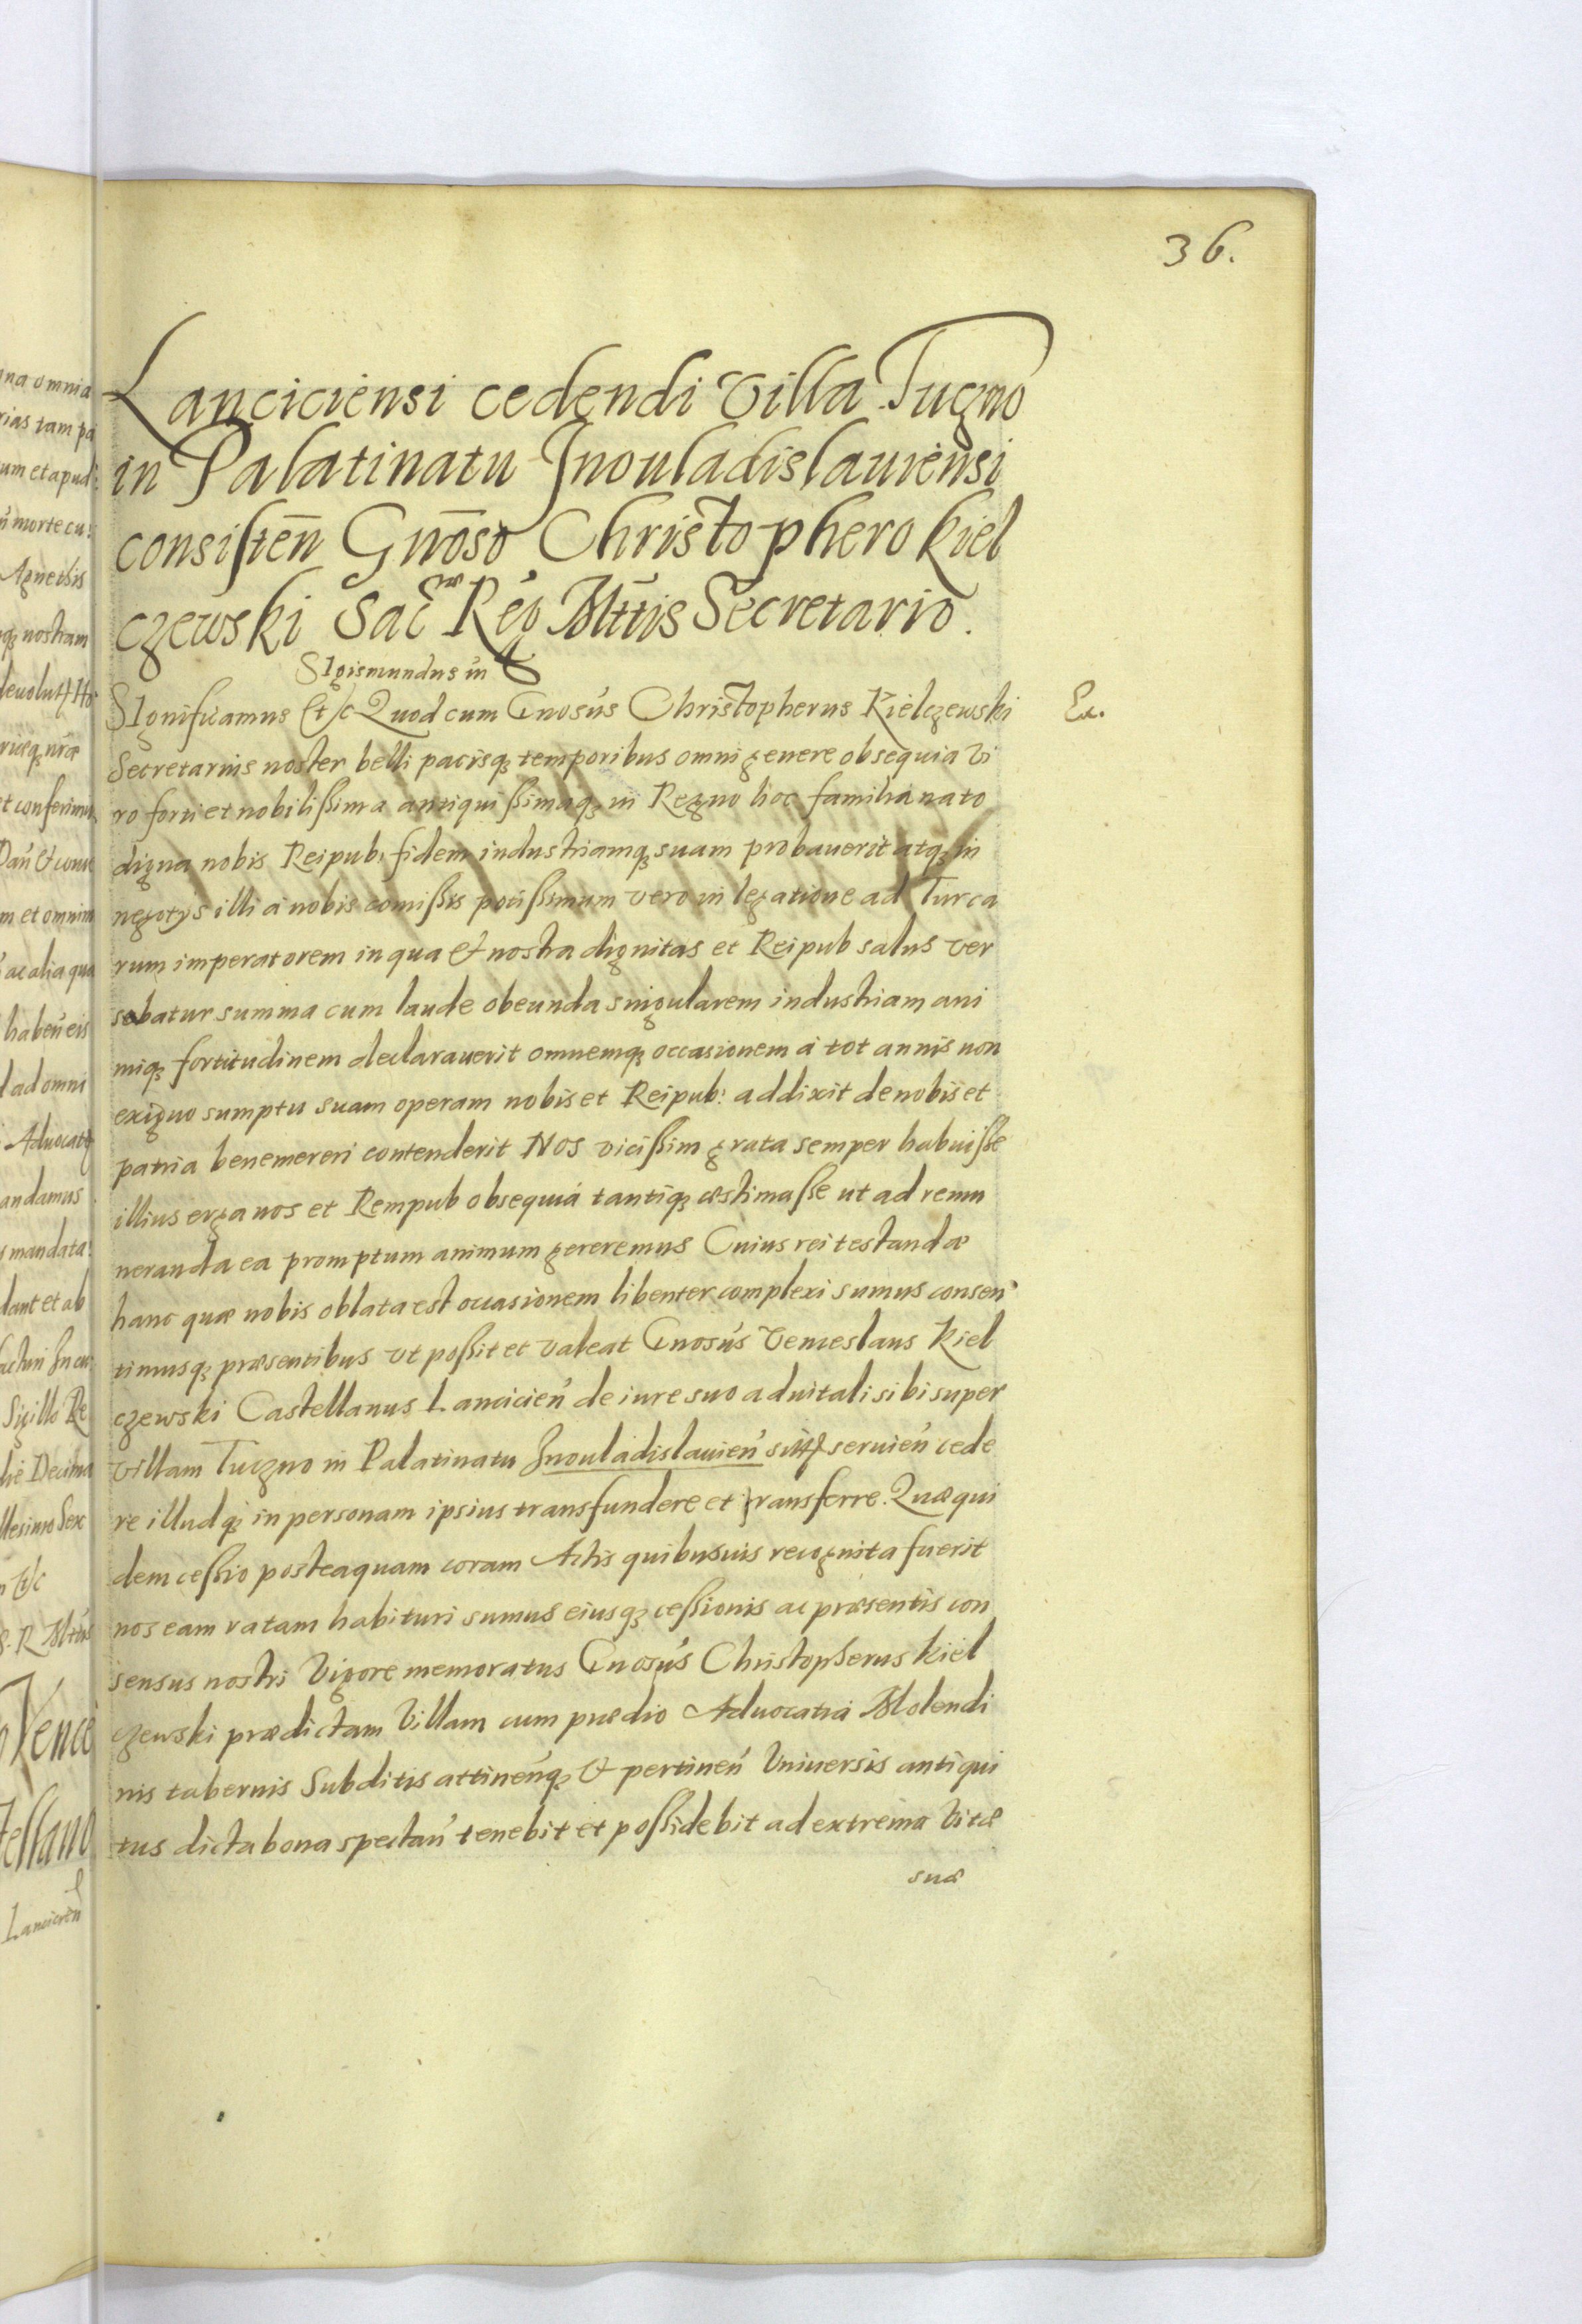 36.
Lanciciensi cedendi Villa Tuczno
in Palatinatu Jnouladislauiensi
consisten̄ Gn̄oso Christophero Kiel
czewski Sac̄ræ Reg Mttis Secretario.
SIgismundus iii
SIgnificamus &c Quod cum Gnosus Christopherus Kielczewski
Ex.
Secretarius noster belli pacisq; temporibus omni genere obsequia vi
ro forti et nobilissima antiquissimaq; in Regno hoc familia nato
digna nobis Reipub: fidem industriamq; suam probauerit atq; in
negotys illi a nobis comissis potissimum vero in legatione ad Turca
rum imperatorem in qua & nostra dignitas et Reipub salus ver
sabatur summa cum laude obeunda singularem industriam ani
miq; fortitudinem declarauerit omnemq; occasionem a tot annis non
exiguo sumptu suam operam nobis et Reipub: addixit de nobis et
patria benemereri contenderit Nos vicissim grata semper habuisse
illius erga nos et Rempub obsequia tantiq; æstimasse ut ad remu
neranda ea promptum animum gereremus Cuius rei testandæ
hanc quæ nobis oblata est occasionem libenter complexi sumus consen
timusq; præsentibus vt possit et valeat Gnosus Venceslaus Kiel
czewski Castellanus Lancicien̄ de iure suo aduitali sibi super
villam Tuczno in Palatinatu Jnouladislauien̄ seruien̄ cede
re illudq; in personam ipsius transfundere et transferre. Quæ qui
dem cessio posteaquam coram Actis quibusuis recognita fuerit
nos eam ratam habituri sumus eiusq; cessionis ac præsentis con
sensus nostri Vigore memoratus Gnosus Christopherus Kiel
czewski prædictam Villam cum prædio Aduocatia Molendi
nis tabernis Subditis attinen̄q; & pertinen̄ Vniuersis antiqui
tus dicta bona spectan̄ tenebit et possidebit ad extrema Vitæ
suæ